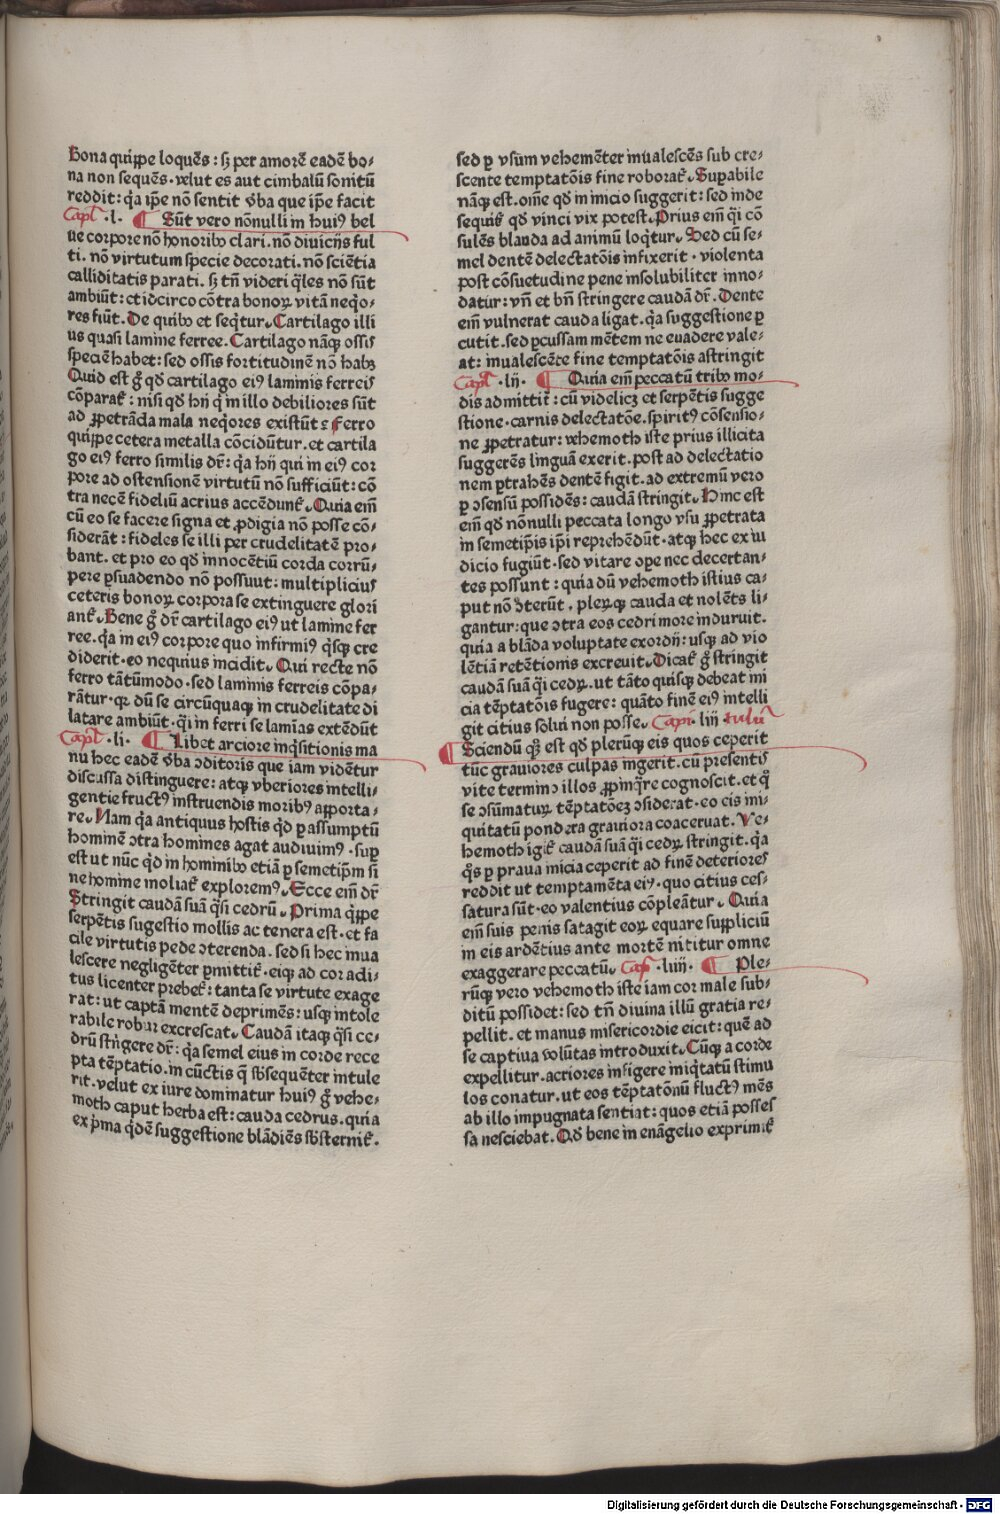 Bona quippe loquēs : sꝫ per amorē eadē bo⸗
na non sequēs · velut es aut cimbalū sonitū
reddit : qa ipe nō sentit v̄ba que ipe facit
Capl · l · ¶ Sūt vero nōnulli in huiꝰ bel
ue corpore nō honoribꝰ clari . nō diuicijs ful
ti . nō virtutum specie decorati . nō sciētia
calliditatis parati . sꝫ tn̄ videri q̄les nō sūt
ambiūt : et idcirco cōtra bonoꝝ vitā neqͦ⸗
res fiūt . De quibꝰ et seqͥtur . Cartilago illi
us quasi lamine ferree . Cartilago nāqꝫ ossis
speciē habet : sed ossis fortitudinē nō habꝫ
Quid est gͦ qd̄ cartilago eiꝰ laminis ferreis
cōparat᷑ : nisi qd̄ hij qͥ in illo debiliores sūt
ad ꝓpetrāda mala neqͦres existūt : Ferro
quippe cetera metalla cōcidūtur . et cartila
go eiꝰ ferro similis dr̄ : qa hij qui in eiꝰ cor
pore ad ostensionē virtutū nō sufficiūt : cō
tra necē fideliū acrius accēdunt᷑ . Quia em̄
cū eo se facere signa et ꝓdigia nō posse cō⸗
siderāt : fideles se illi per crudelitatē pro⸗
bant . et pro eo qd̄ innocētiū corda corrū⸗
pere ꝑsuadendo nō possuut : multiplicius
ceteris bonoꝝ corpora se extinguere glori
ant᷑ . Bene gͦ dr̄ cartilago eiꝰ ut lamine fer
ree . qa in eiꝰ corpore quo infirmiꝰ qͥsqꝫ cre
diderit · eo nequius incidit . Qui recte nō
ferro tātūmodo · sed laminis ferreis cōpa⸗
rātur · qꝛ dū se circūquaqꝫ in crudelitate di
latare ambiūt · qͣi in ferri se lamīas extēdūt
Capl · li · ¶ Libet arciore inqͥsitionis ma
nu hec eadē v̄ba ↄditoris que iam vidētur
discussa distinguere : atqꝫ vberiores intelli⸗
gentie fructꝰ instruendis moribꝰ apporta⸗
re . Nam qa antiquus hostis qd̄ ꝑ assumptū
hominē ↄtra homines agat audiuimꝰ · suꝑ
est ut nūc qd̄ in hominibꝰ etiā ꝑ semetipm si
ne homine moliat᷑ exploremꝰ . Ecce em̄ dr̄
Stringit caudā suā qͣsi cedrū . Prima qͥppe
serpētis sugestio mollis ac tenera est · et fa
cile virtutis pede ↄterenda . sed si hec inua
lescere negligēter ꝑmittit᷑ . eiqꝫ ad cor adi⸗
tus licenter prebet᷑ : tanta se virtute exage
rat : ut captā mentē deprimēs : usqꝫ intole
rabile robur excrescat . Caudā itaqꝫ qͣsi ce⸗
drū strīgere dr̄ : qa semel eius in corde rece
pta tēptatio . in cūctis q̄ sb̄sequēter intule
rit . velut ex iure dominatur huiꝰ gͦ vehe⸗
moth caput herba est : cauda cedrus . quia
ex pͥma qͥdē suggestione blādiēs sb̄sternit᷑ .
sed ꝑ vsum vehemēter inualescēs sub cre⸗
scente temptatōis fine roborat᷑ . Suꝑabile
nāqꝫ est . om̄e qd̄ in inicio suggerit : sed inde
sequit᷑ qd̄ vinci vix potest . Prius em̄ qͣi cō
sulēs blanda ad animū loqͥtur . Sed cū se⸗
mel dentē delectatōis infixerit · violenta
post cōsuetudine pene insolubiliter inno⸗
datur : vn̄ et bn̄ stringere caudā dr̄ . Dente
em̄ vulnerat cauda ligat . qa suggestione ꝑ
cutit . sed ꝑcussam mētem ne euadere vale⸗
at : inualescēte fine temptatōis astringit
Capl · lij · ¶ Quia em̄ peccatū tribꝰ mo⸗
dis admittit᷑ : cū videlicꝫ et serpētis sugge
stione · carnis delectatōe . spiritꝰ cōsensio⸗
ne ꝓpetratur : vehemoth iste prius illicita
suggerēs linguā exerit . post ad delectatio
nem ꝑtrahēs dentē figit . ad extremū vero
ꝑ ↄsensū possidēs : caudā stringit . Hinc est
em̄ qd̄ nōnulli peccata longo vsu ꝓpetrata
in semetip̄is ip̄i reprehēdūt · atqꝫ hec ex iu
dicio fugiūt · sed vitare oꝑe nec decertan⸗
tes possunt : quia dū vehemoth istius ca⸗
put nō ↄterūt . pleꝝqꝫ cauda et nolēts li⸗
gantur : que ↄtra eos cedri more induruit .
quia a blāda voluptate exordij : usqꝫ ad vio
lētiā retētionis excreuit . Dicat᷑ gͦ stringit
caudā suā qͣi cedꝝ . ut tāto quisqꝫ debeat ini
cia tēptatōis fugere : quāto finē eiꝰ intelli
git citius solui non posse . Capi · liij titulū
¶ Sciendū qͦꝫ est qd̄ plerūqꝫ eis quos ceperit
tūc grauiores culpas ingerit . cū presentis
vite termino illos ꝓpinqͣre cognoscit . et qͦ
se ↄsūmatuꝝ tēptatōeꝫ ↄsiderat · eo eis ini⸗
quitatū pondera grauiora coaceruat . Ve⸗
hemoth igit᷑ caudā suā qͣi cedꝝ stringit . qa
qͦs ꝑ praua inicia ceperit ad finē deteriores
reddit ut temptamēta eiꝰ · quo citius ces⸗
satura sūt · eo valentius cōpleātur . Quia
em̄ suis penis satagit eoꝝ equare suppliciū
in eis ardētius ante mortē nititur omne
exaggerare peccatū . Cap · liiij · ¶ Ple⸗
rūqꝫ vero vehemoth iste iam cor male sub⸗
ditū possidet : sed tn̄ diuina illū gratia re⸗
pellit . et manus misericordie eicit : quē ad
se captiua volūtas introduxit . Cūqꝫ a corde
expellitur . acriores infigere iniqͥtatū stimu
los conatur . ut eos tēptatōnū fluctꝰ mēs
ab illo impugnata sentiat : quos etiā posses
sa nesciebat . Qd̄ bene in enāgelio exprimit᷑
Digitalisierung gefördert durch die Deutsche Forschungsgemeinschaft - DFG